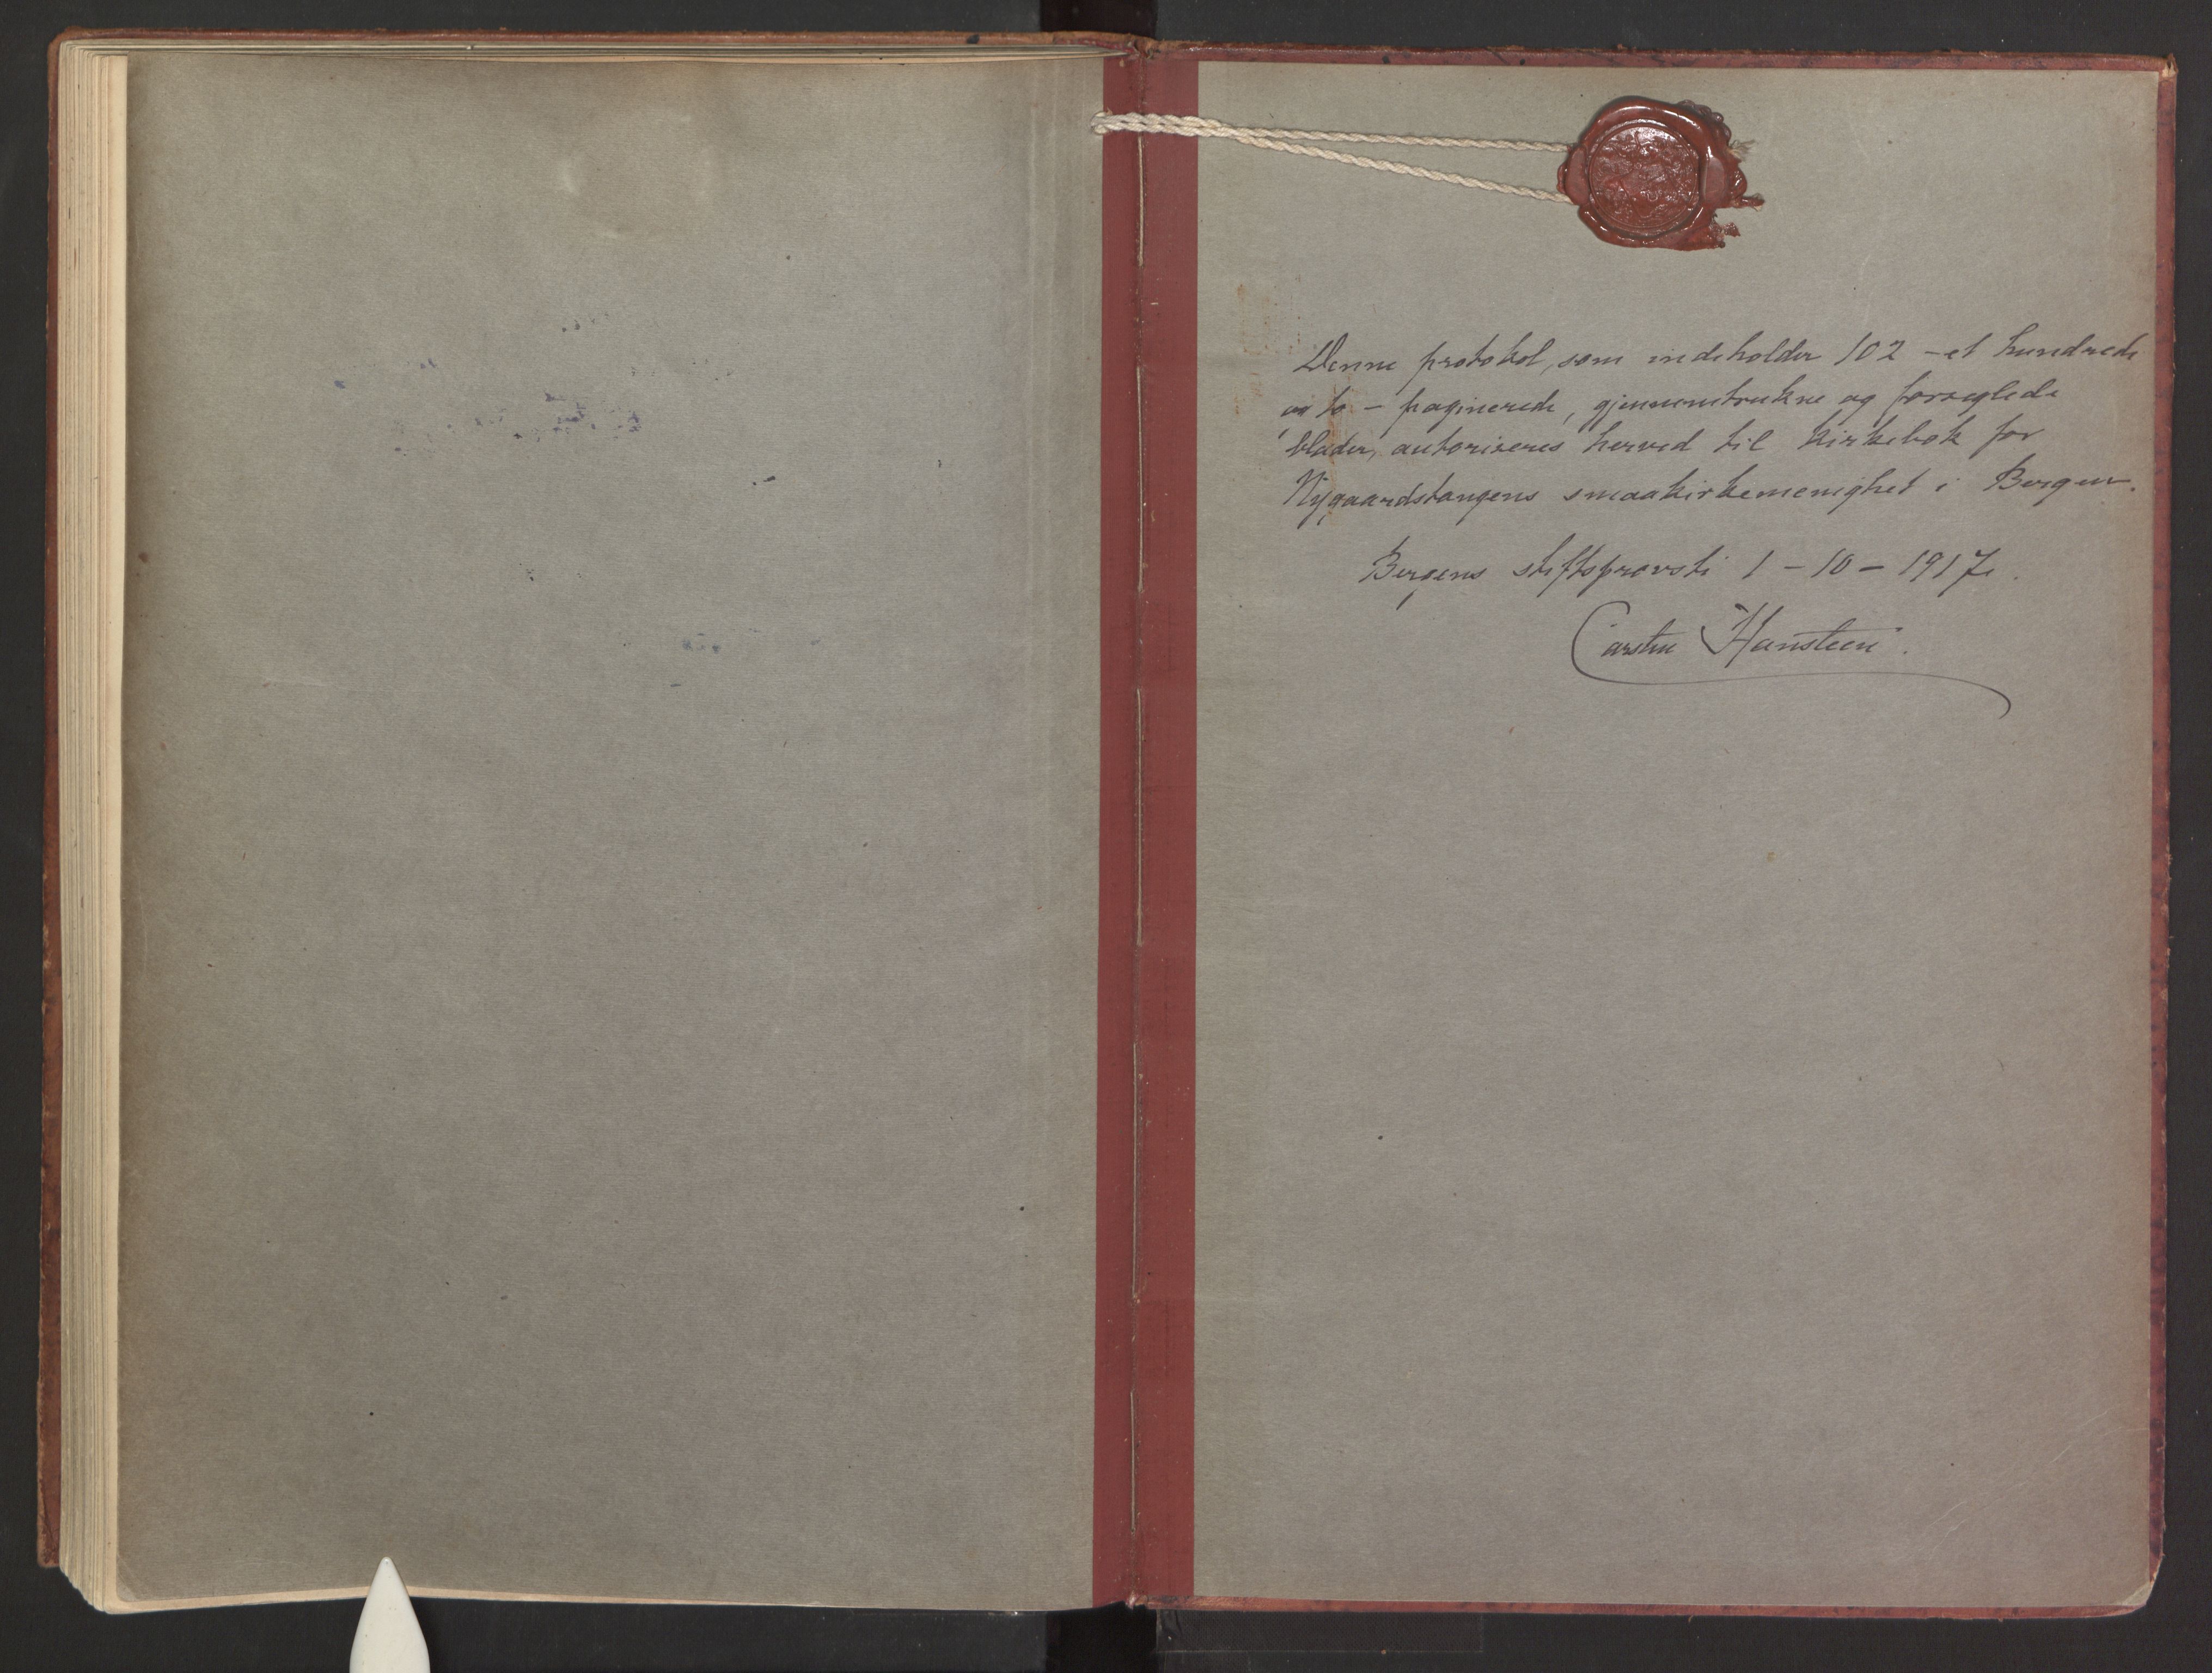 Denne protokol, som indeholder 102 - et hundrede
og to - paginerede, gjennemtrukne og forseglede
blader, autoriseres herved til kirkebok for
Nygaardstangens smaakirkemenighet i Bergen.
Bergens stiftsprovsti 1 - 10 - 1917.
Carsten Hansteen.